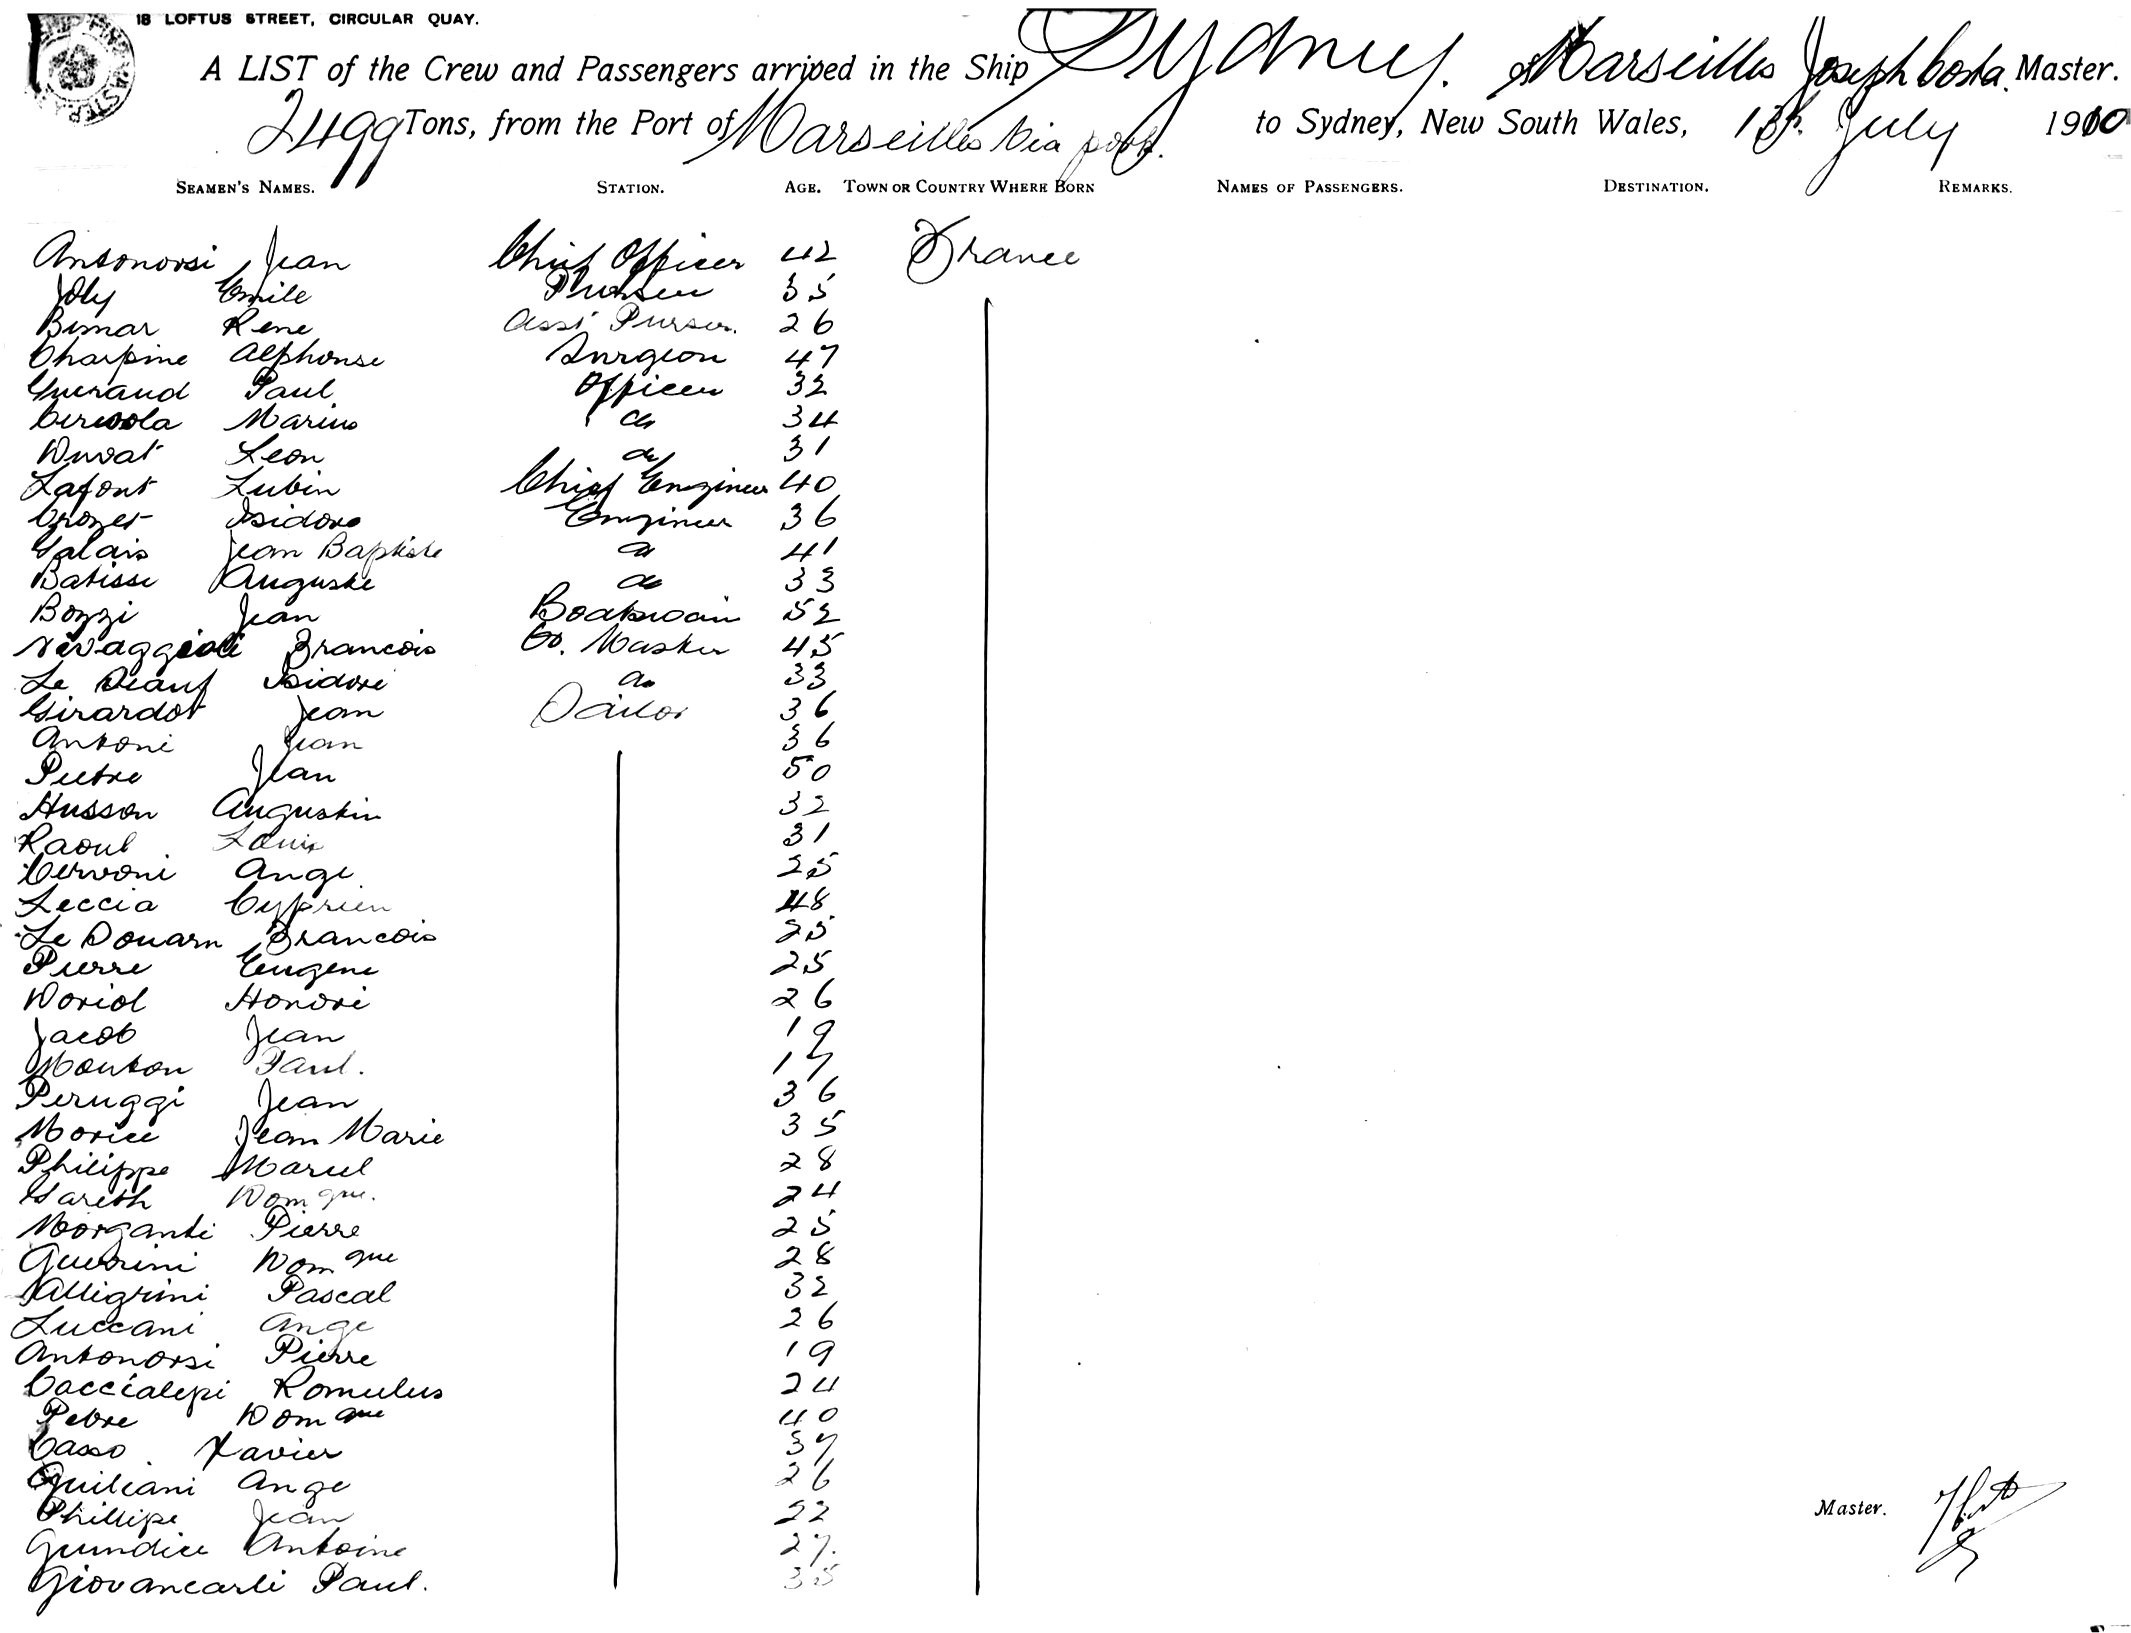 18 LOFTUS STREET, CIRCULAR QUAY.
A LIST of the Crew and Passengers arrived in the Ship Sydney. of Marseilles Joseph Costa. Master.
2499 Tons, from the Port of Marseilles Via ports. to Sydney, New South Wales, 13th July 1910
SEAMEN'S NAMES. STATION. AGE. TOWN OR COUNTRY WHERE BORN NAMES OF PASSENGERS. DESTINATION. REMARKS.
Antonorsi Jean Chief Officer 42 France
Joly Emile Purser 35
Bimar Rene Asst Purser. 26
Charpine Alphonse Surgeon 47
Gueraud Paul Officer 32
Ceresola Marius do 34
Duvat Leon do 31
Lafont Lubin Chief Engineer 40
Crozet Isidore Engineer 36
Galais Jean Baptiste do 41
Batisse Auguste do 33
Bozzi Jean Boatswain 52
Francois Qr. Master 45
Le Isidore do 33
Girardot Jean Sailor 36
Antoni Jean 36
Pietre Jean 50
Husson Augustin 32
Raoul Louis 31
Cervoni Ange 25
Leccia Cyprien 48
Le Douarn Francois 25
Pierre Eugene 25
Doriol Honore 26
Jacob Jean 19
Mouton Paul. 17
Peruggi Jean 36
Morice Jean Marie 35
Philippe Marcel 28
Gareth Domque. 24
Morganti Pierre 25
Guerrini Domque 28
Alligrini Pascal 32
Luccani Ange 26
Antonorsi Pierre 19
Caccialepi Romulus 24
Petre Domque 40
Casso Xavier 37
Guiliani Ange 26
Phillipe Jean 22
Guindice Antoine 27.
Giovancarli Paul. 35
Master.